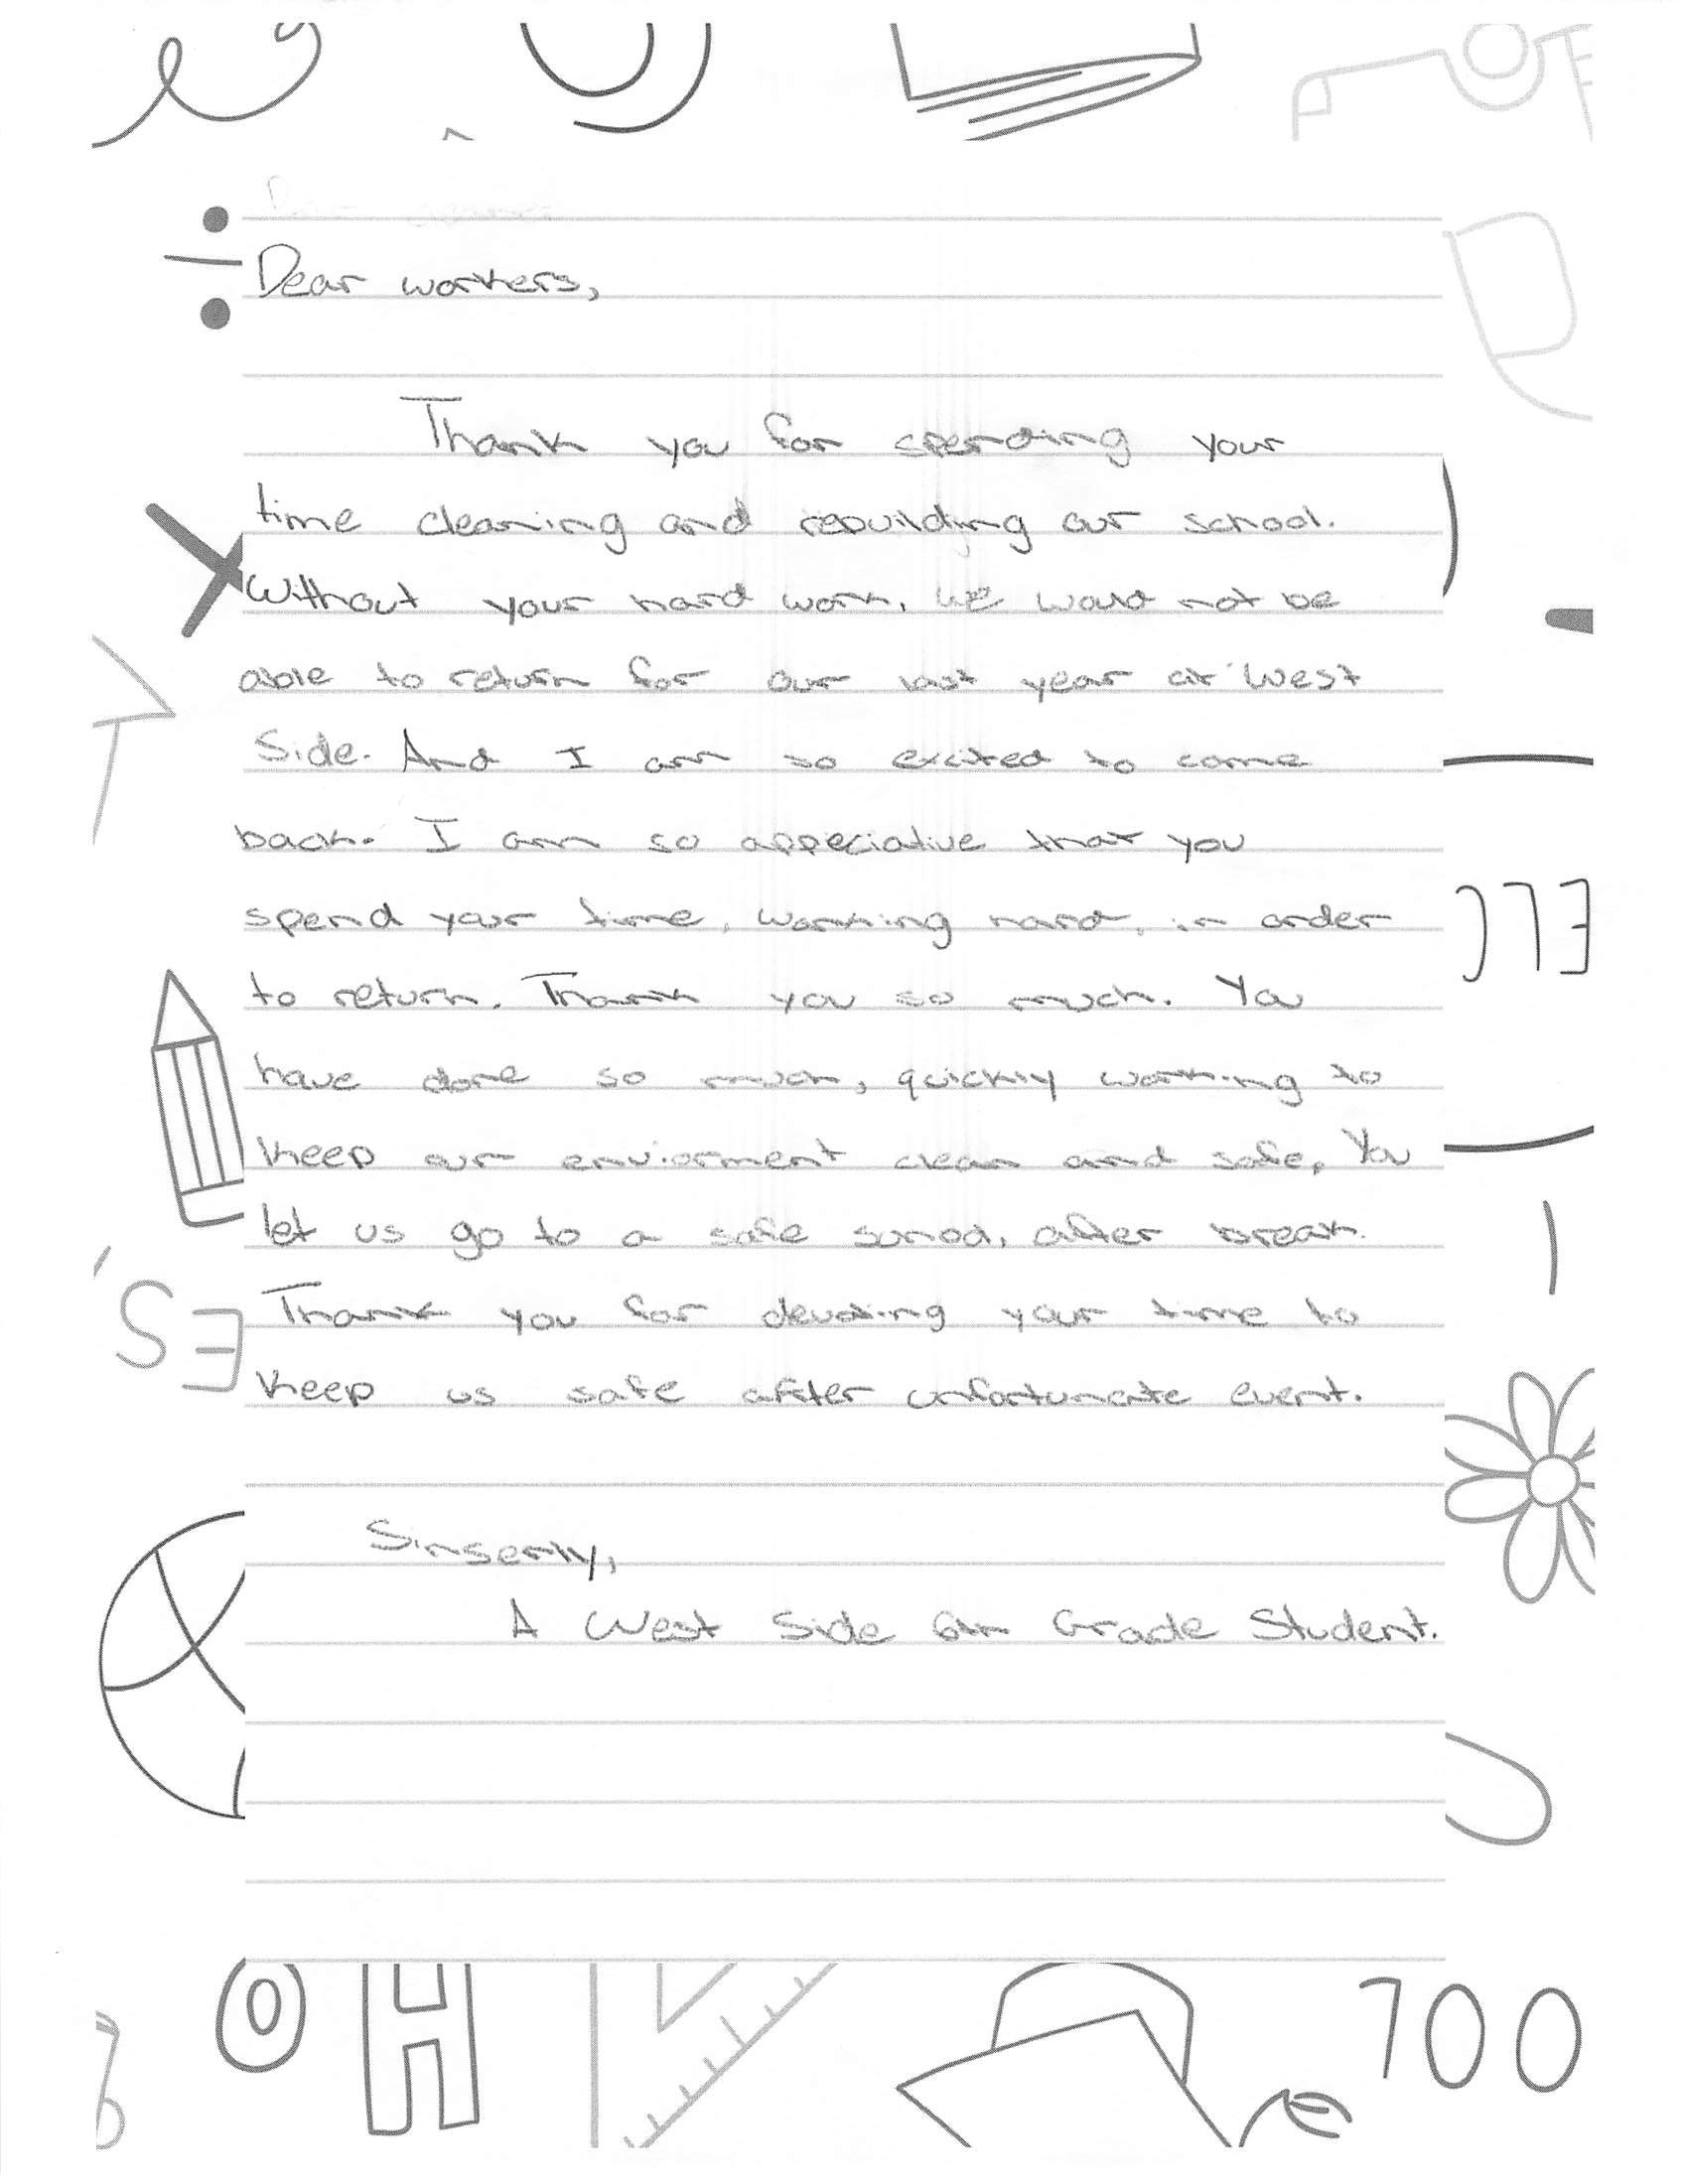 Dear workers,
Thank you for spending your
time cleaning and rebuilding our school.
Without your hard work, we would not be
able to return for our last year at West
Side. And I am so excited to come
back. I am so appeciative that you
spend your time, working hard, in order
to return. Thank you so much. You
have done so much, quickly working to
keep our enviorment clean and safe, You
let us go to a safe school, after break.
Thank you for devoting your time to
keep us safe after unfortunate event.
Sinserly,
A West Side 6th Grade Student.
100